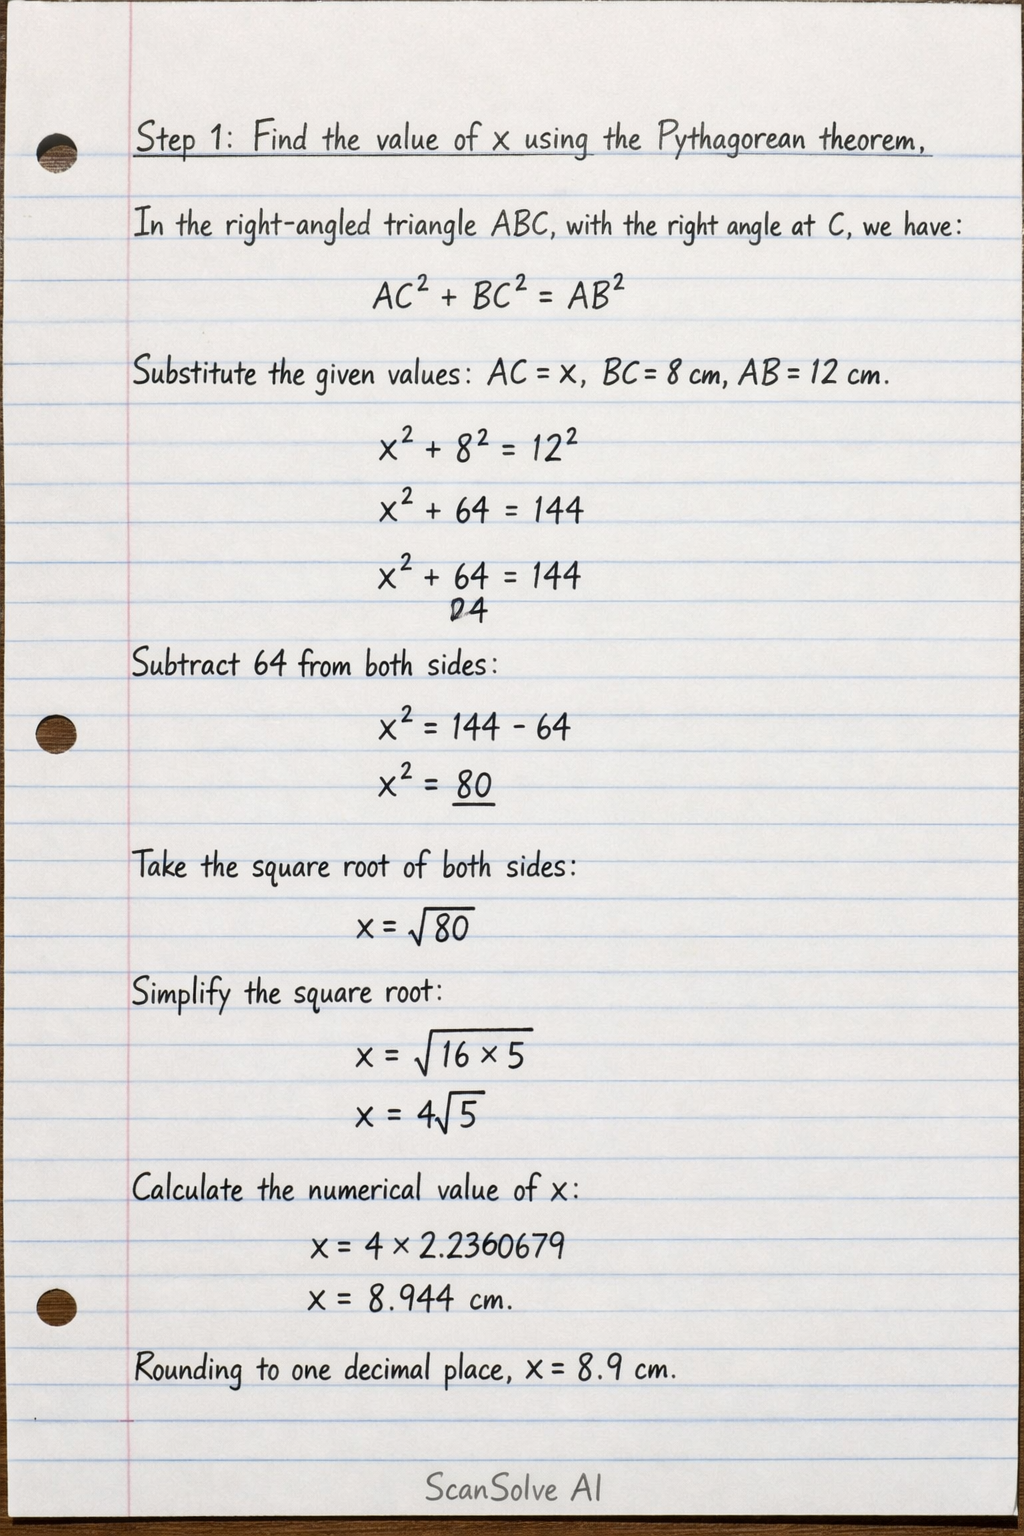 Step 1: Find the value of x using the Pythagorean theorem,
In the right-angled triangle ABC, with the right angle at C, we have:
AC² + BC² = AB²
Substitute the given values: AC = x, BC = 8 cm, AB = 12 cm.
x² + 8² = 12²
x² + 64 = 144
x² + 64 = 144
24
Subtract 64 from both sides:
x² = 144 - 64
x² = 80
Take the square root of both sides:
x = √80
Simplify the square root:
x = √16 × 5
x = 4√5
Calculate the numerical value of x:
x = 4 × 2.2360679
x = 8.944 cm.
Rounding to one decimal place, x = 8.9 cm.
ScanSolve AI